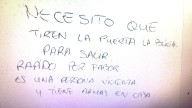 NECESITO QUE
TIREN LA PUERTA LA
PARA SALIR
RAPIDO POR FABOR
ES UNA PERSONA VIOLENTA
Y TIENE ARMAS EN CASA